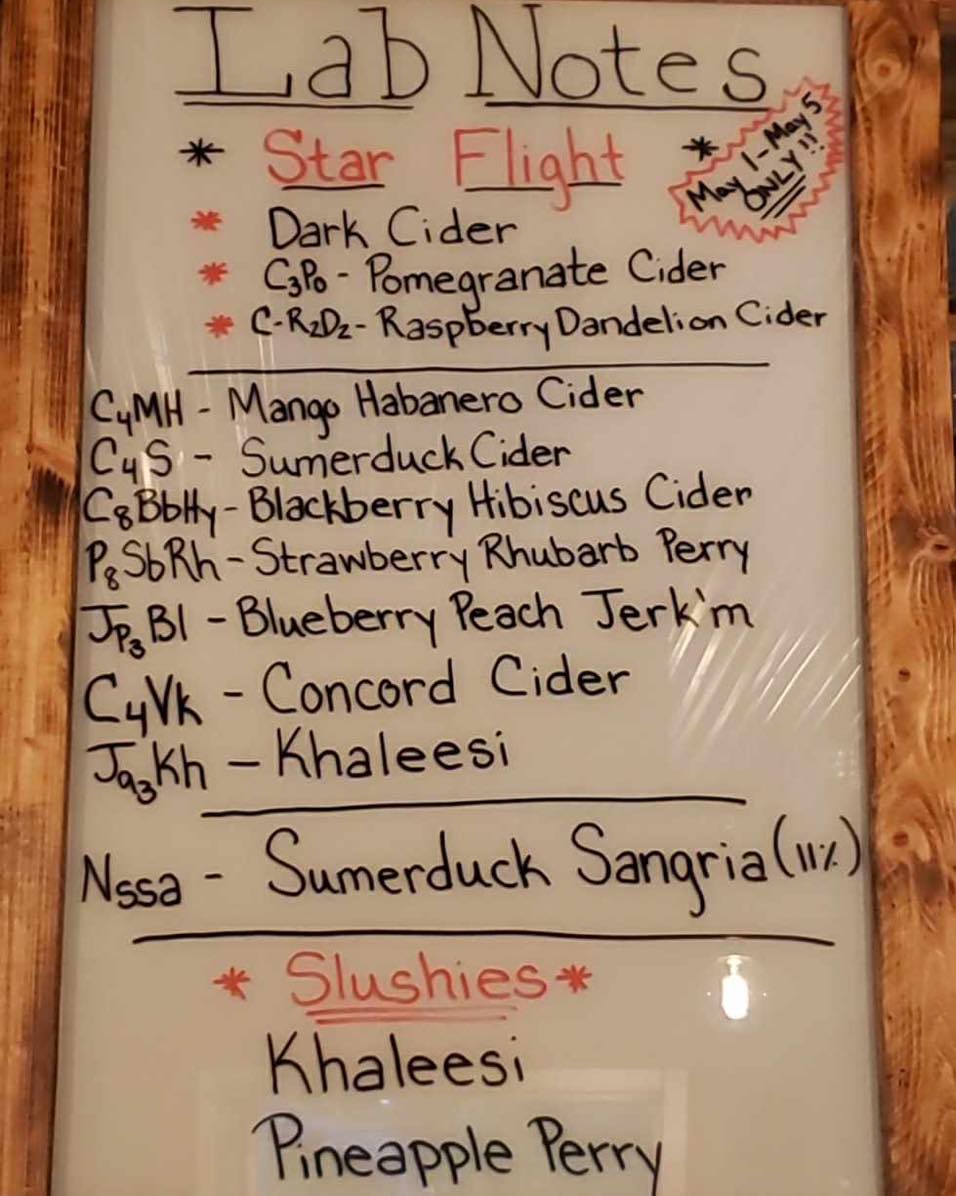 Lab Notes
* Star Flight *
May 1-May 5
ONLY!!
* Dark Cider
* C3P0 - Pomegranate Cider
* C-R2D2 - Raspberry Dandelion Cider
C4MH - Mango Habanero Cider
C4S - Sumerduck Cider
C8BbHy - Blackberry Hibiscus Cider
P8SbRh - Strawberry Rhubarb Perry
Jp3Bl - Blueberry Peach Jerk'm
C4Vk - Concord Cider
Ja3Kh - Khaleesi
Nssa - Sumerduck Sangria (11%)
* Slushies *
Khaleesi
Pineapple Perry